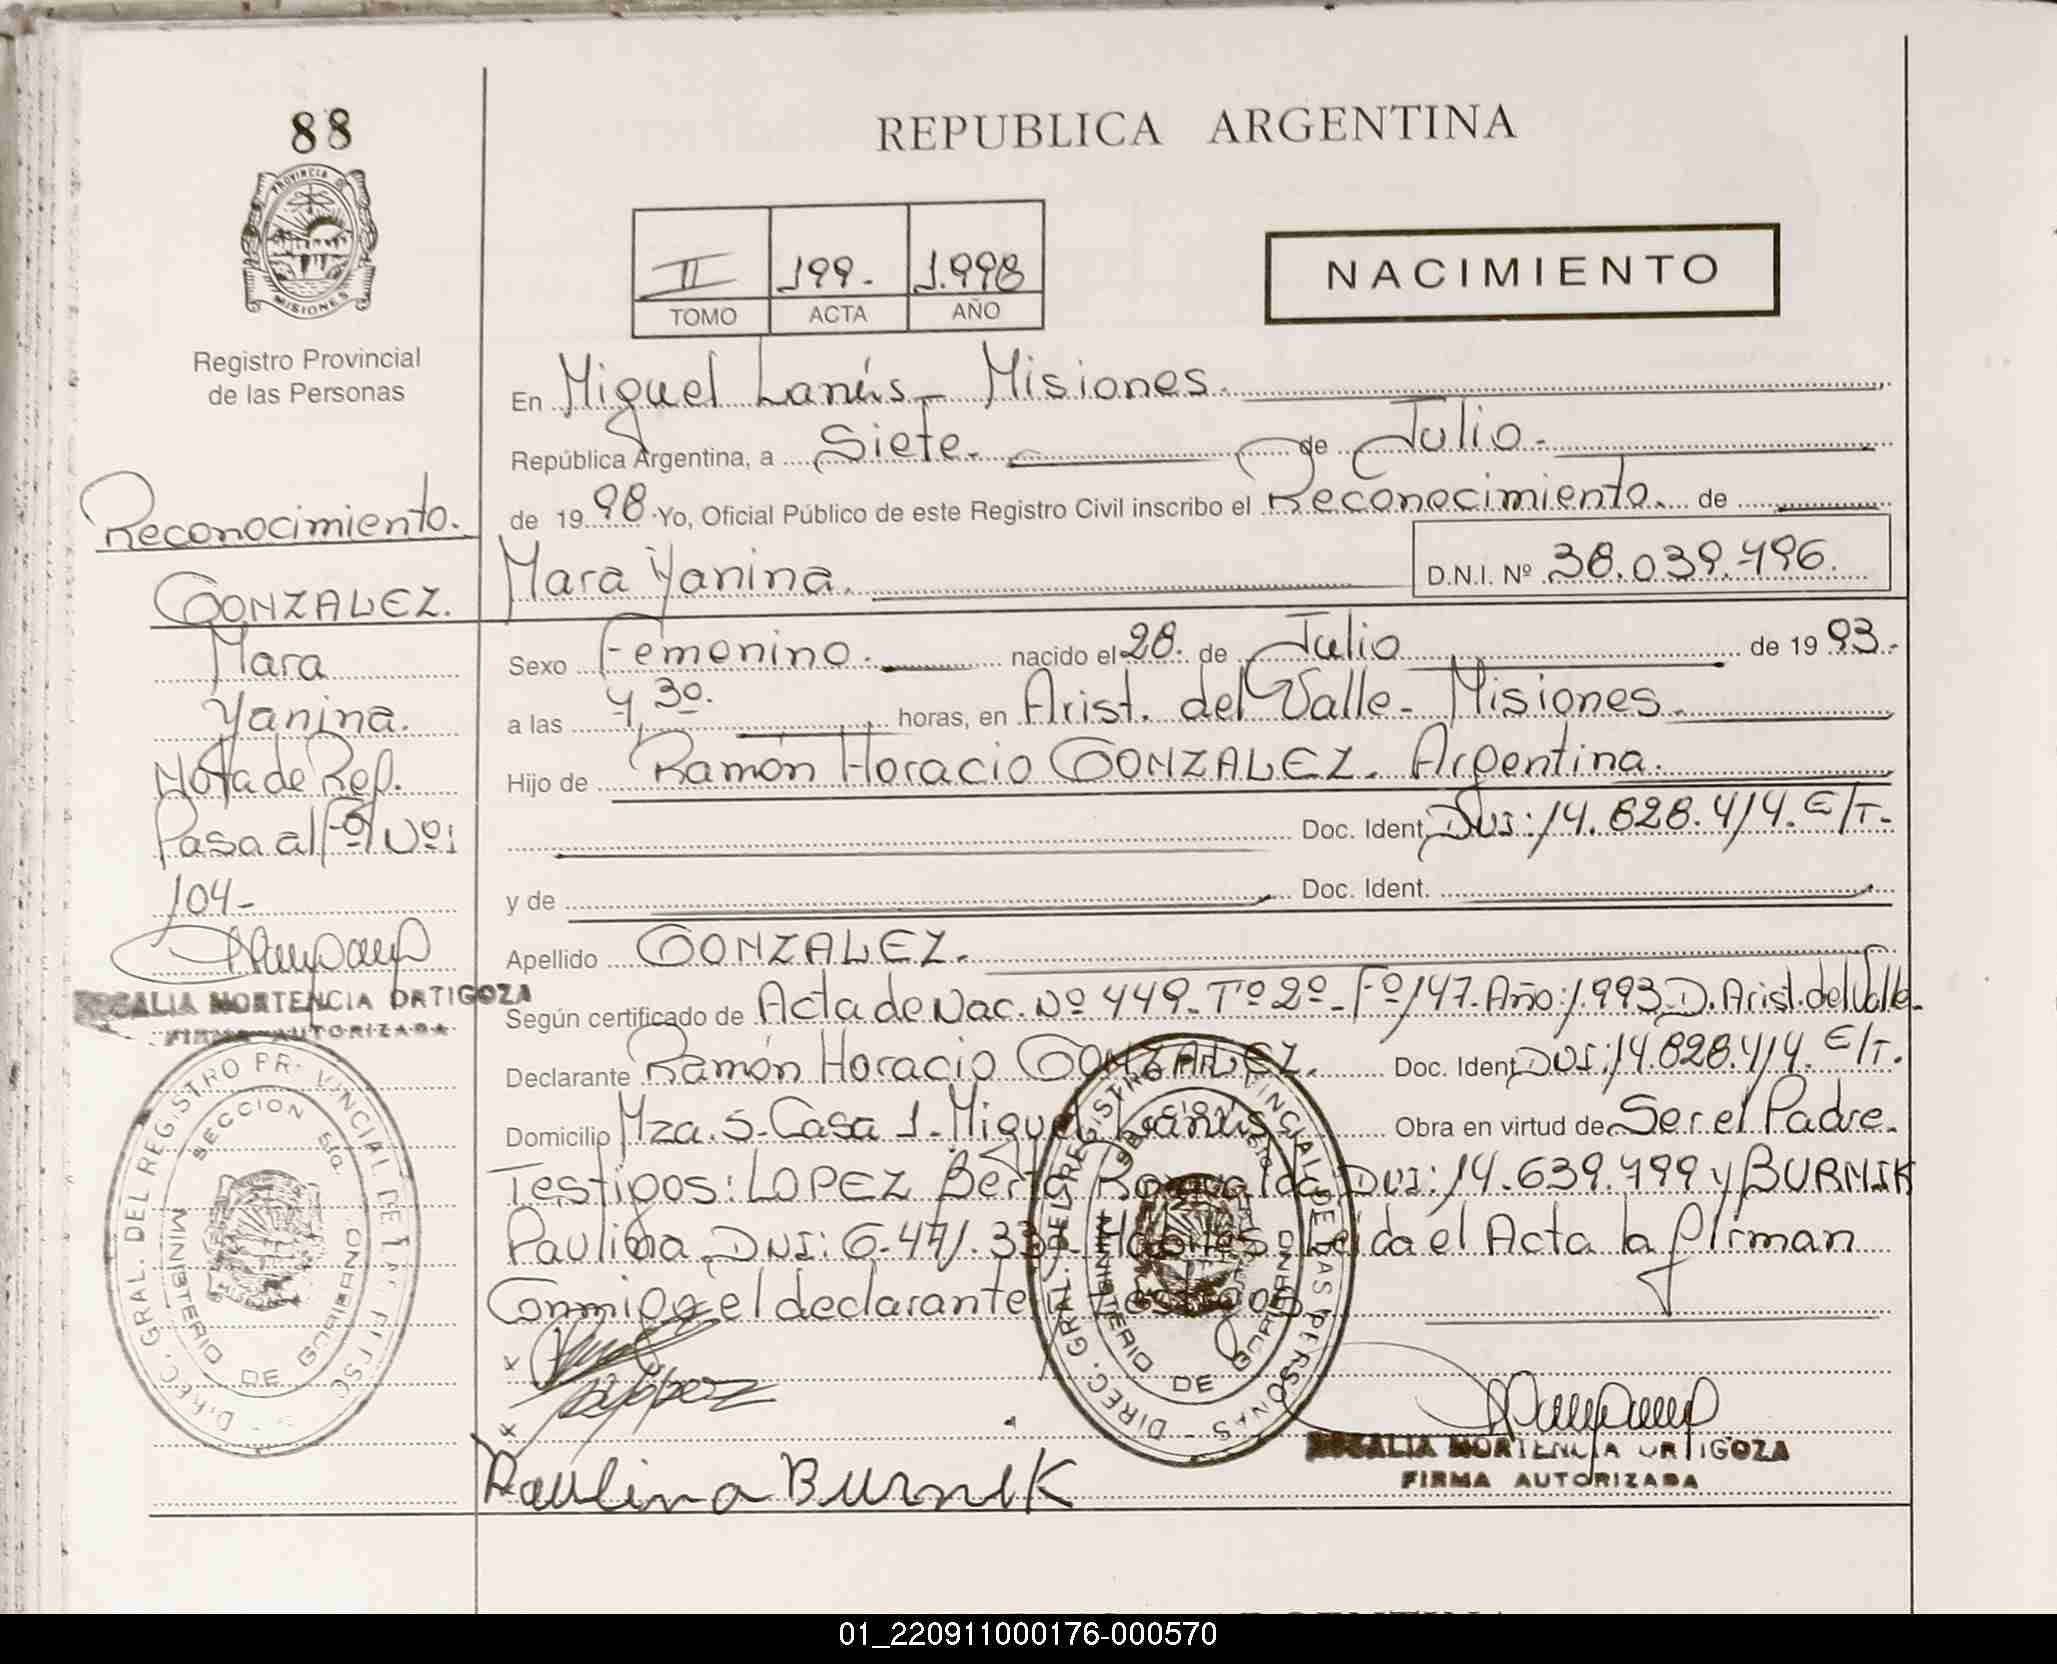 88
PROVINCIA DE
MISIONES
Registro Provincial
de las Personas
Reconocimiento.
GONZALEZ.
Mara
Yanina.
Nota de Ref.
Pasa al Fº Nº:
104-
ROSALIA HORTENCIA ORTIGOZA
FIRMA AUTORIZADA
DIREC. GRAL. DEL REGISTRO PROVINCIAL DE LAS PERSONAS
SECCION 5ta.
MINISTERIO DE GOBIERNO
REPUBLICA ARGENTINA
II 199- 1.998
TOMO ACTA AÑO
NACIMIENTO
En Miguel Lanús - Misiones.
República Argentina, a Siete. de Julio-
de 1998. Yo, Oficial Público de este Registro Civil inscribo el Reconocimiento. de
Mara Yanina. D.N.I. Nº 38.039.796.
Sexo Femenino. nacido el 28. de Julio de 1993.-
a las 7,30. horas, en Arist. del Valle- Misiones.
Hijo de Ramón Horacio GONZALEZ. Argentina.
Doc. Ident. DNI: 14.828.414. E/T.
y de Doc. Ident.
Apellido GONZALEZ.
Según certificado de Acta de Nac. Nº 449- Tº 2º- Fº 147. Año: 1.993 D. Arist. del Valle-
Declarante Ramón Horacio GONZALEZ. Doc. Ident. DNI: 14.828.414. E/T.
Domicilio Mza. 5- Casa 1- Miguel Lanús. Obra en virtud de Ser el Padre.
Testigos: LOPEZ Berta DNI: 14.639.799 y BURNIK
Paulina. DNI: 6.471. Leida el Acta la firman
Conmigo el declarante Testigos
López
Paulina Burnik
DIREC. GRAL. DEL REGISTRO PROVINCIAL DE LAS PERSONAS
MINISTERIO DE GOBIERNO
ROSALIA HORTENCIA ORTIGOZA
FIRMA AUTORIZADA
01_220911000176-000570